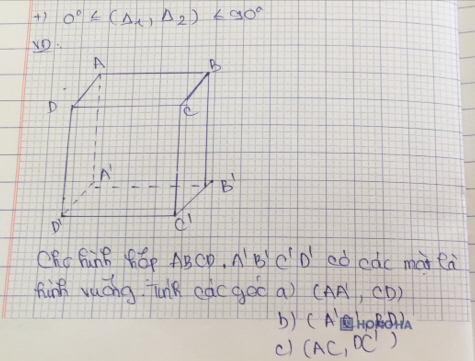 +) 0° ≤ (Δ₁, Δ₂) ≤ 90°
VD:
A
B
D
C
A'
B'
D'
C'
Cho hình hộp ABCD. A'B'C'D' có các mặt là
hình vuông. Tính các góc a) (AA', CD)
b) (A'
HOIDHA
c) (AC, DC')